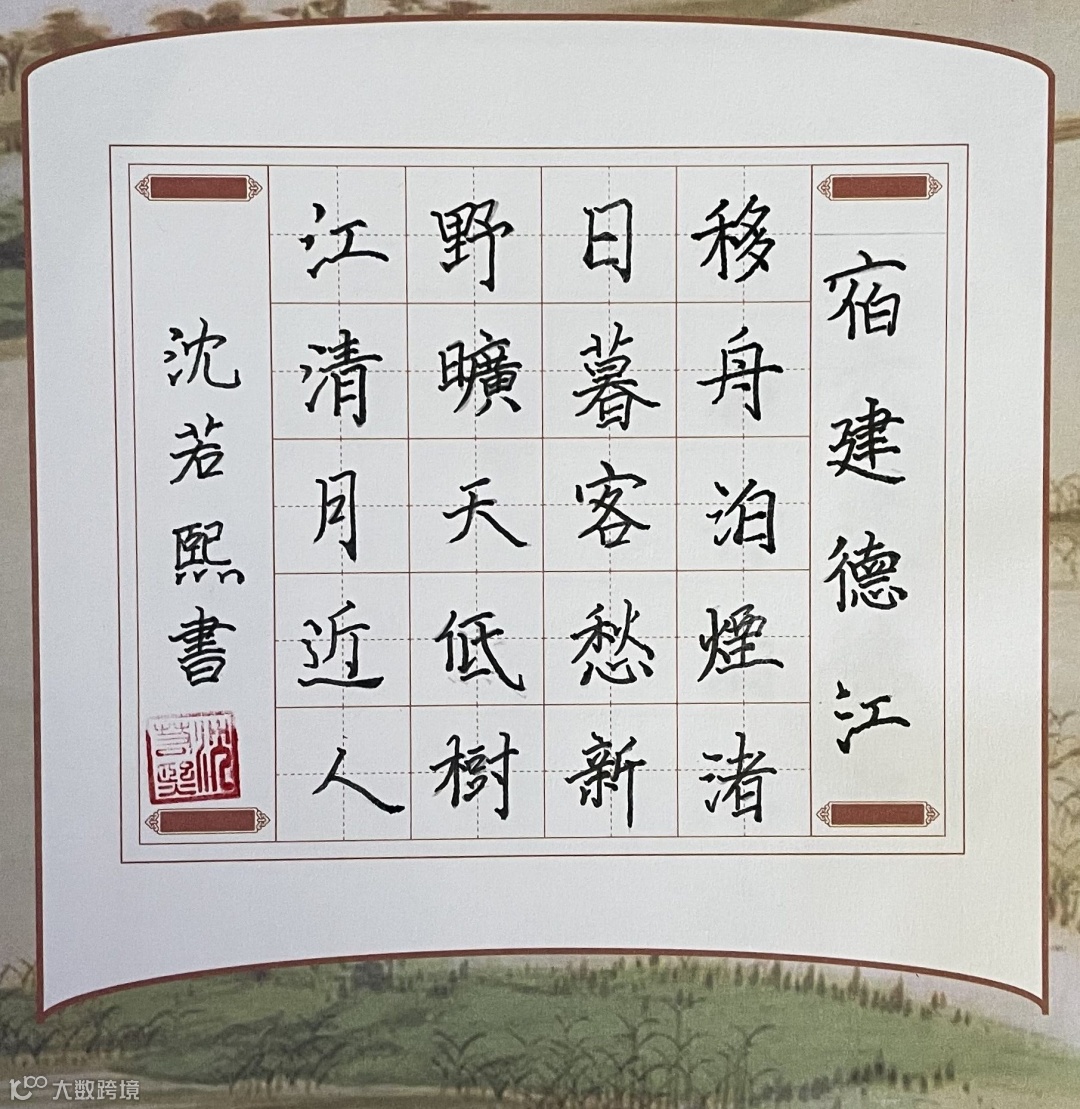 宿建德江
移舟泊煙渚
日暮客愁新
野曠天低樹
江清月近人
沈若熙書
沈若熙
大数跨境